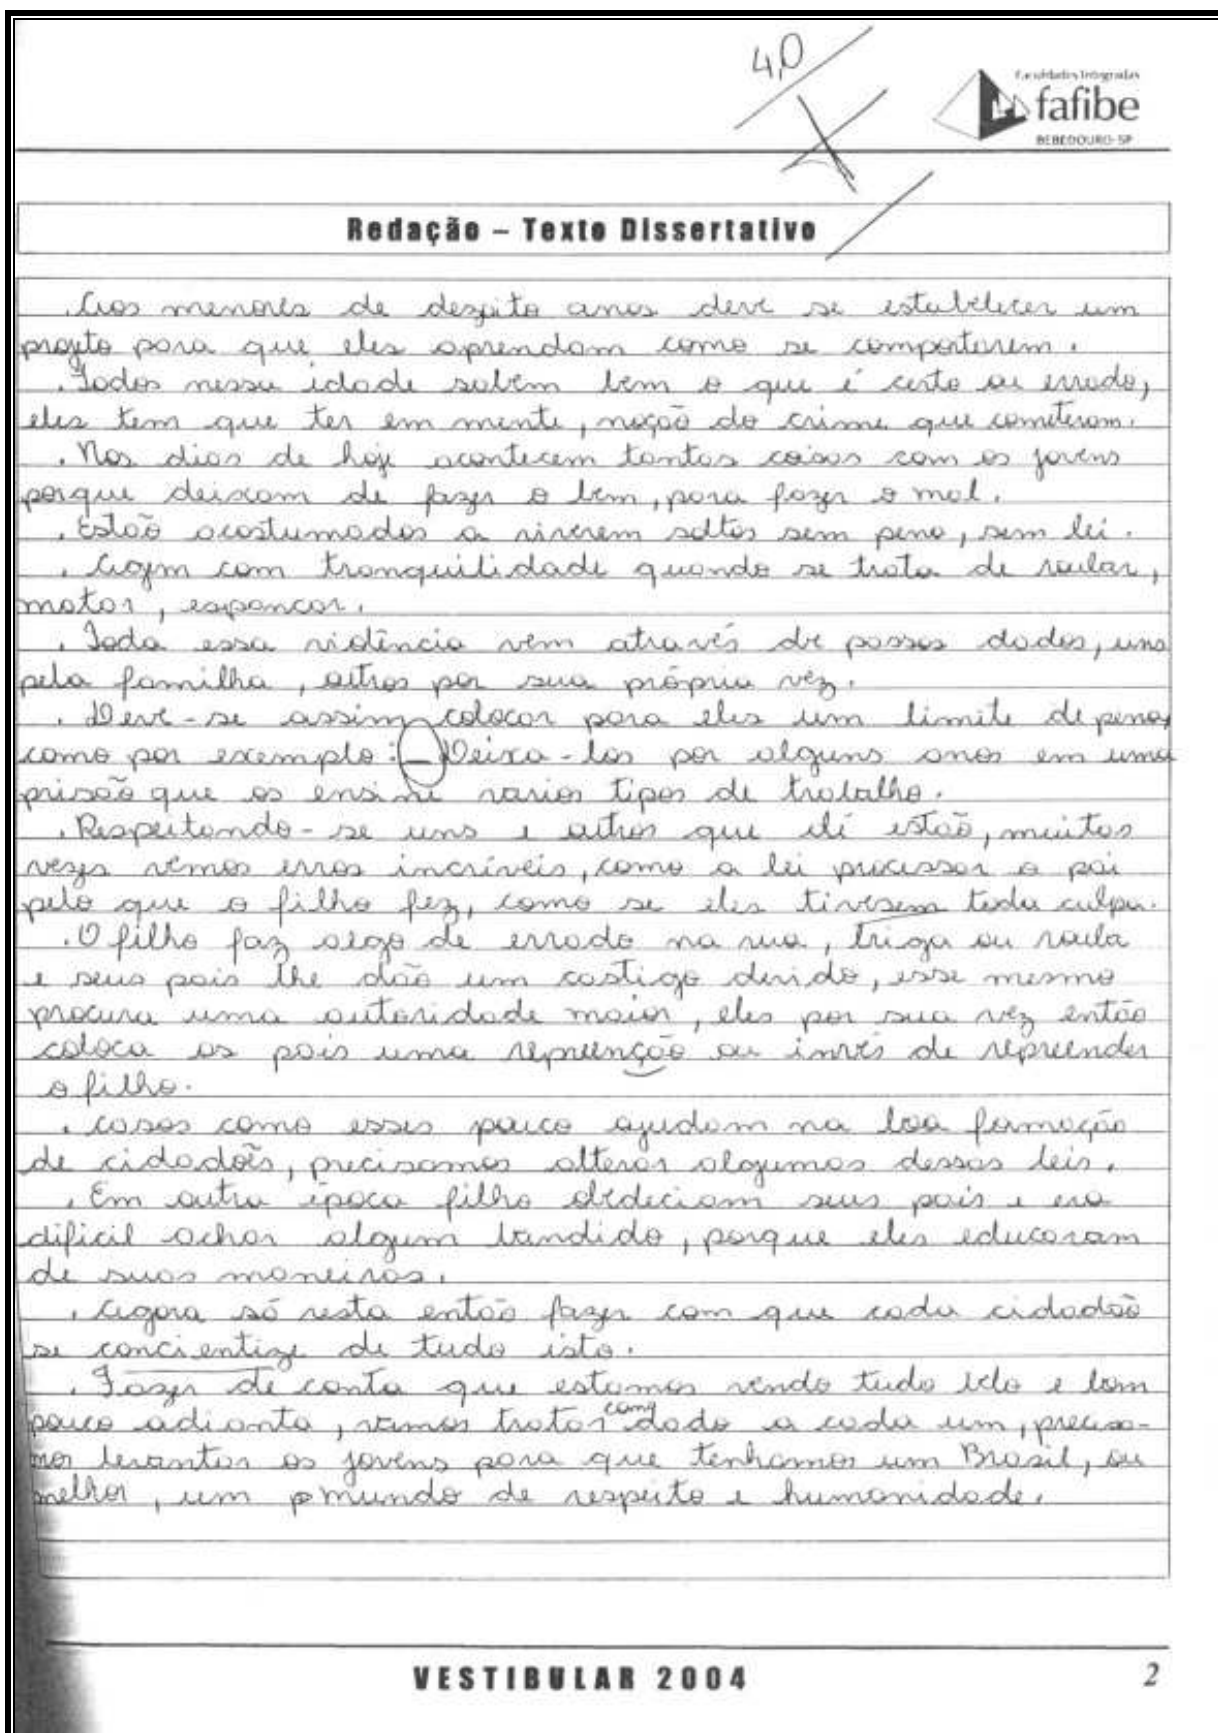 4,0
Faculdades Integradas
fafibe
BEBEDOURO-SP
Redação – Texto Dissertativo
. Aos menores de dezoito anos deve se estabelecer um
projeto para que eles aprendam como se comportarem.
. Todos nessa idade sabem bem o que é certo ou errado,
eles tem que ter em mente, noção do crime que cometeram.
. Nos dias de hoje acontecem tantas coisas com os jovens
porque deixam de fazer o bem, para fazer o mal.
. Estão acostumados a viverem soltos sem pena, sem lei.
. Agem com tranquilidade quando se trata de roubar,
matar, espancar.
. Toda essa violência vem através de passos dados, uns
pela familha, outros por sua própria vêz.
. Deve-se assim colocar para eles um limite de penas
como por exemplo: – Deixa-los por alguns anos em uma
prisão que os ensine varios tipos de trabalho.
. Respeitando-se uns e outros que ali estão, muitas
vezes vemos erros incríveis, como a lei processar o pai
pelo que o filho fez, como se eles tivesem toda culpa.
. O filho faz algo de errado na rua, briga ou rouba
e seus pais lhe dão um castigo devido, esse mesmo
procura uma autoridade maior, eles por sua vez então
coloca os pais uma repreenção ou invés de repreender
o filho.
. Casos como esses pouco ajudam na boa formação
de cidadões, precisamos alterar algumas dessas leis.
. Em outra época filho obdeciam seus pais e era
dificil achar algum bandido, porque eles educaram
de suas maneiras.
. Agora só resta então fazer com que cada cidadão
se concientize de tudo isto.
. Fazer de conta que estamos vendo tudo belo e bom
pouco adianta, vamos tratar como dado a cada um, precisa-
mos levantar os jovens para que tenhamos um Brasil, ou
melhor, um mundo de respeito e humanidade.
VESTIBULAR 2004
2